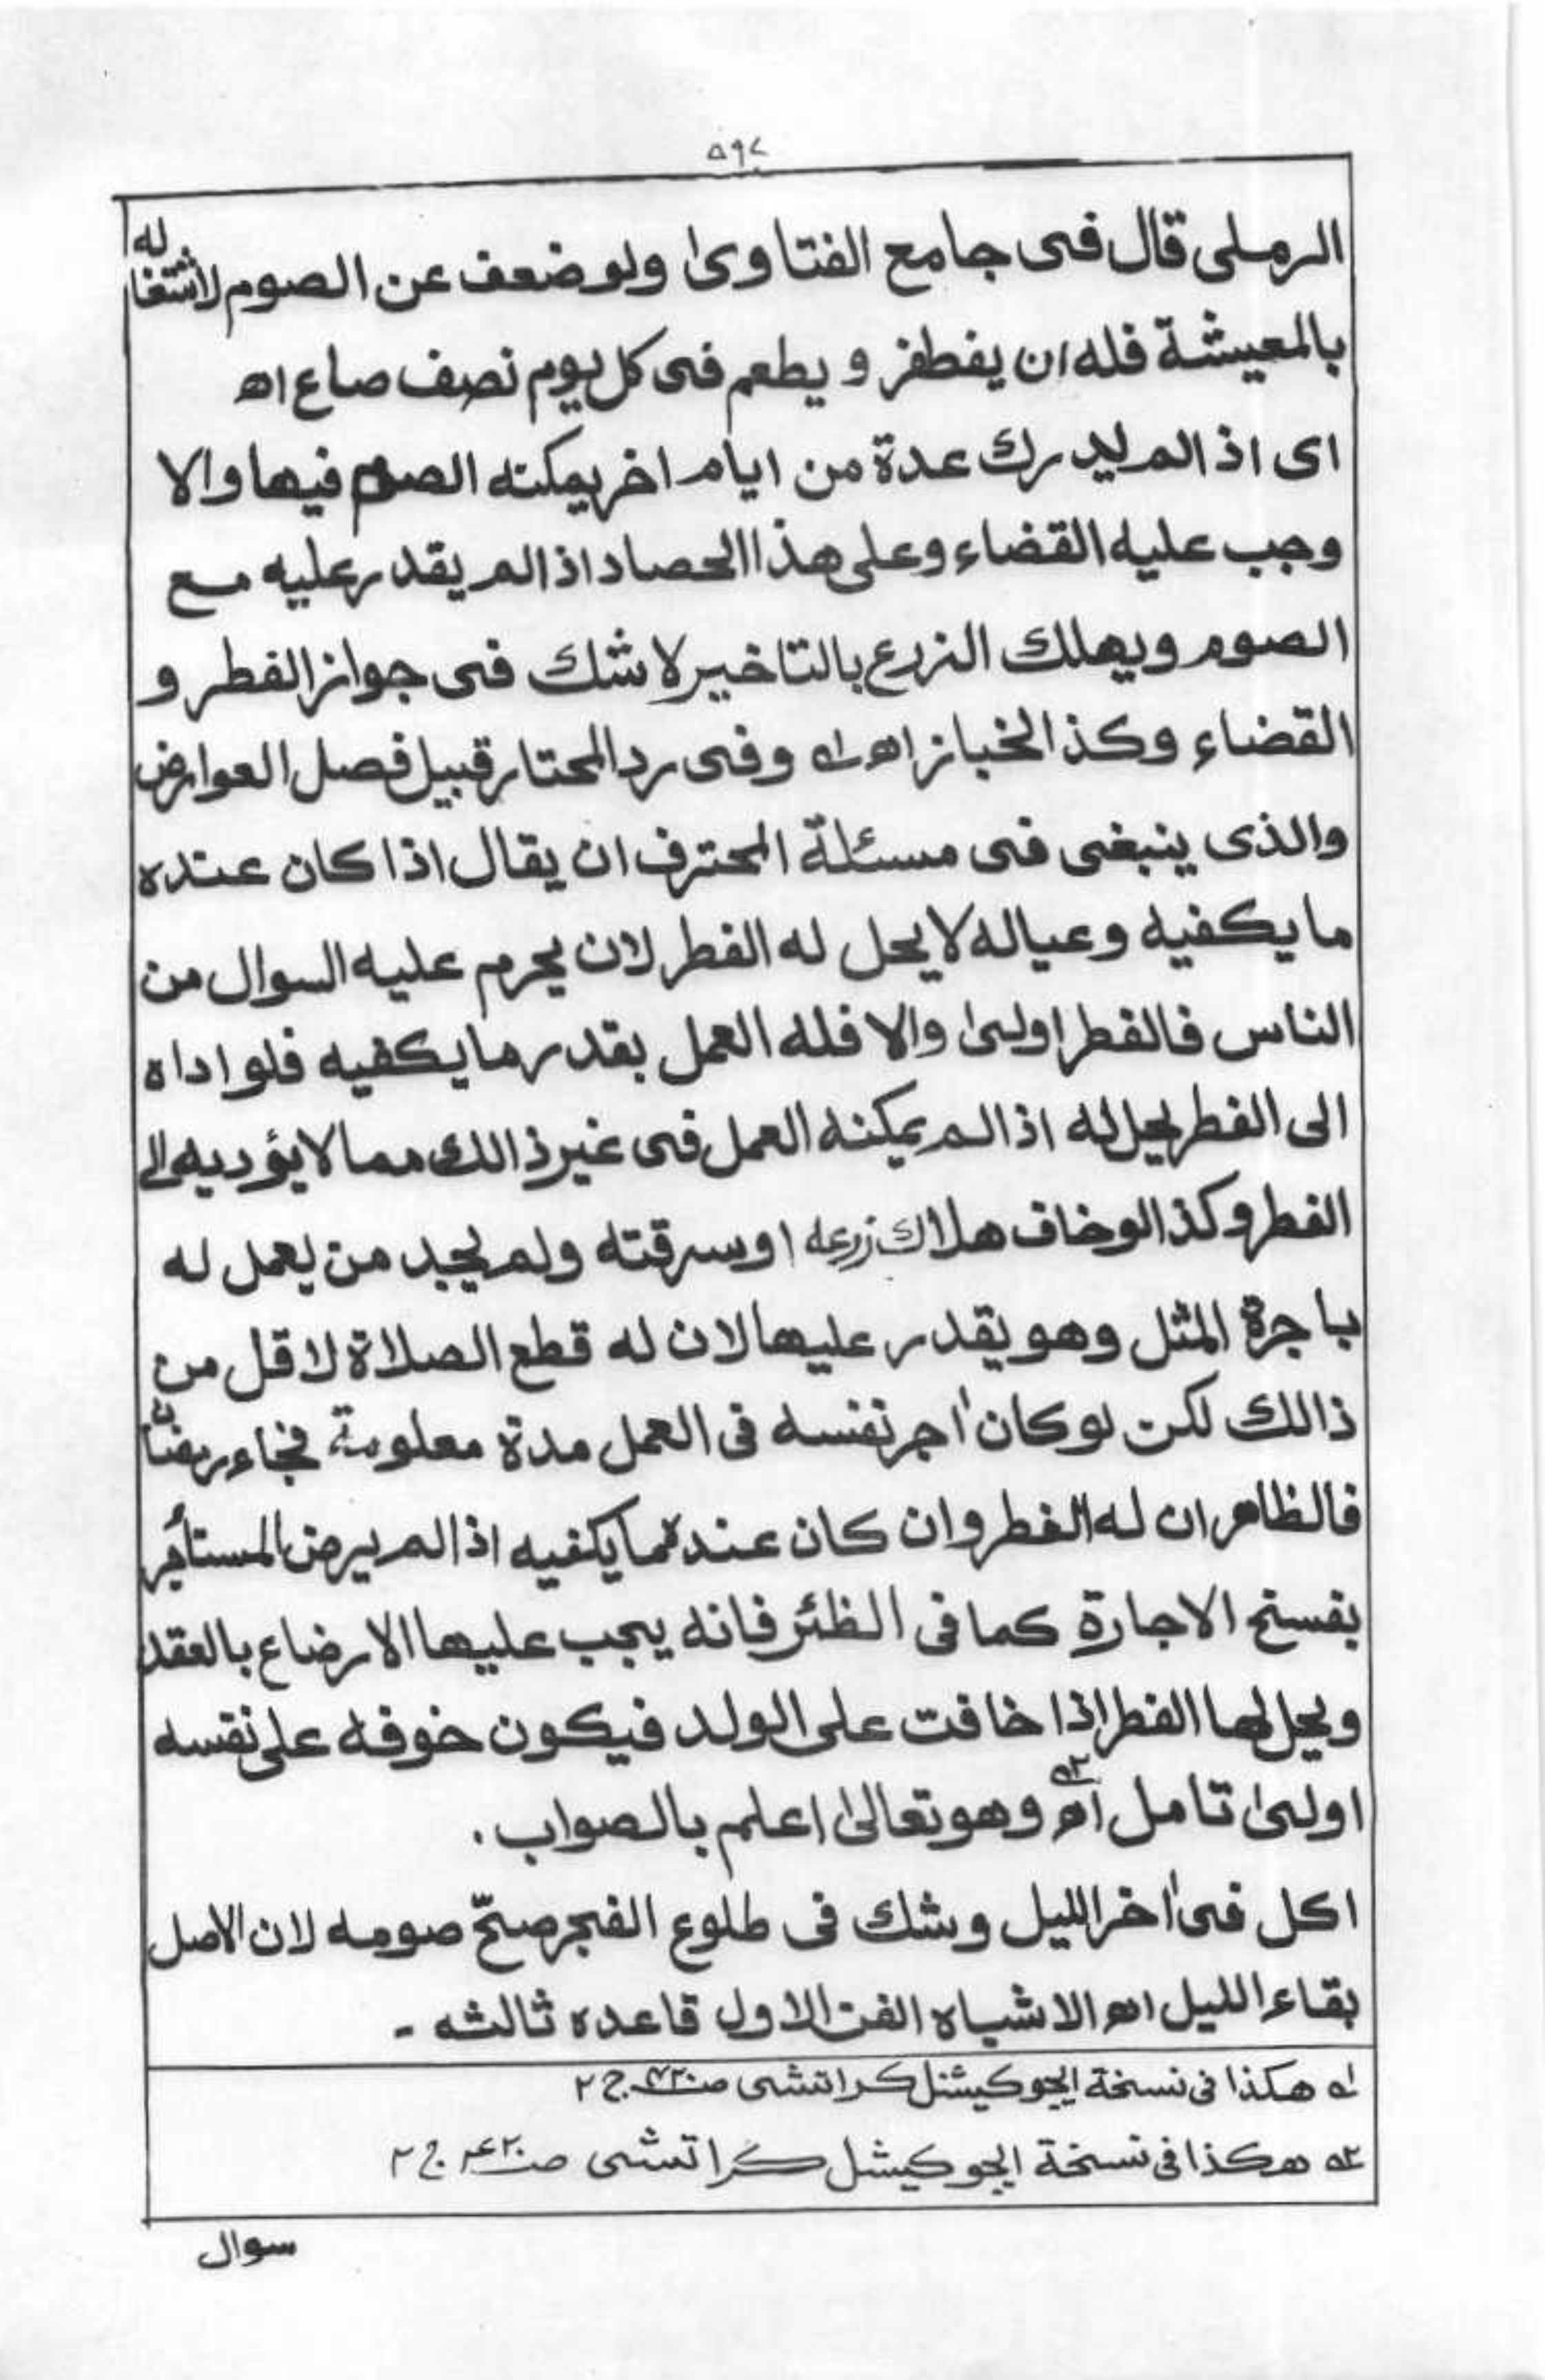 ۵۹۲
الرملی قال فی جامع الفتاویٰ ولو ضعف عن الصوم لاشتغاله
بالمعیشة فله ان یفطر و یطعم فی کل یوم نصف صاع اھ
ای اذا لم یدرک عدة من ایام اخر یمکنه الصوم فیها والا
وجب علیه القضاء وعلی هذا الحصاد اذا لم یقدر علیه مع
الصوم ویهلک الزرع بالتاخیر لا شک فی جواز الفطر و
القضاء وکذا الخباز اھ ۱ وفی رد المحتار قبیل فصل العوارض
والذی ینبغی فی مسئلة المحترف ان یقال اذا کان عنده
ما یکفیه وعیاله لا یحل له الفطر لان یحرم علیه السوال من
الناس فالفطر اولیٰ والا فله العمل بقدر ما یکفیه فلو اداه
الی الفطر یحل له اذا لم یمکنه العمل فی غیر ذالک مما لا یؤدیه الی
الفطر وکذا لو خاف هلاک زرعه او سرقته ولم یجد من یعمل له
باجرة المثل وهو یقدر علیها لان له قطع الصلاة لاقل من
ذالک لکن لو کان اٰجر نفسه فی العمل مدة معلومة فجاء رمضان
فالظاهر ان له الفطر وان کان عنده ما یکفیه اذا لم یرض المستأجر
بفسخ الاجارة کما فی الظئر فانه یجب علیها الارضاع بالعقد
ویحل لها الفطر اذا خافت علی الولد فیکون خوفه علی نفسه
اولیٰ تامل اھ ۲ وهو تعالیٰ اعلم بالصواب.
اکل فی اٰخر اللیل وشک فی طلوع الفجر صحّ صومه لان الاصل
بقاء اللیل اھ الاشباه الفن الاول قاعده ثالثه -
۱ هکذا فی نسخة ایجوکیشنل کراتشی ص۴۲۰ ج ۲
۲ هکذا فی نسخة ایجوکیشل کراتشی ص۴۲۰ ج ۲
سوال